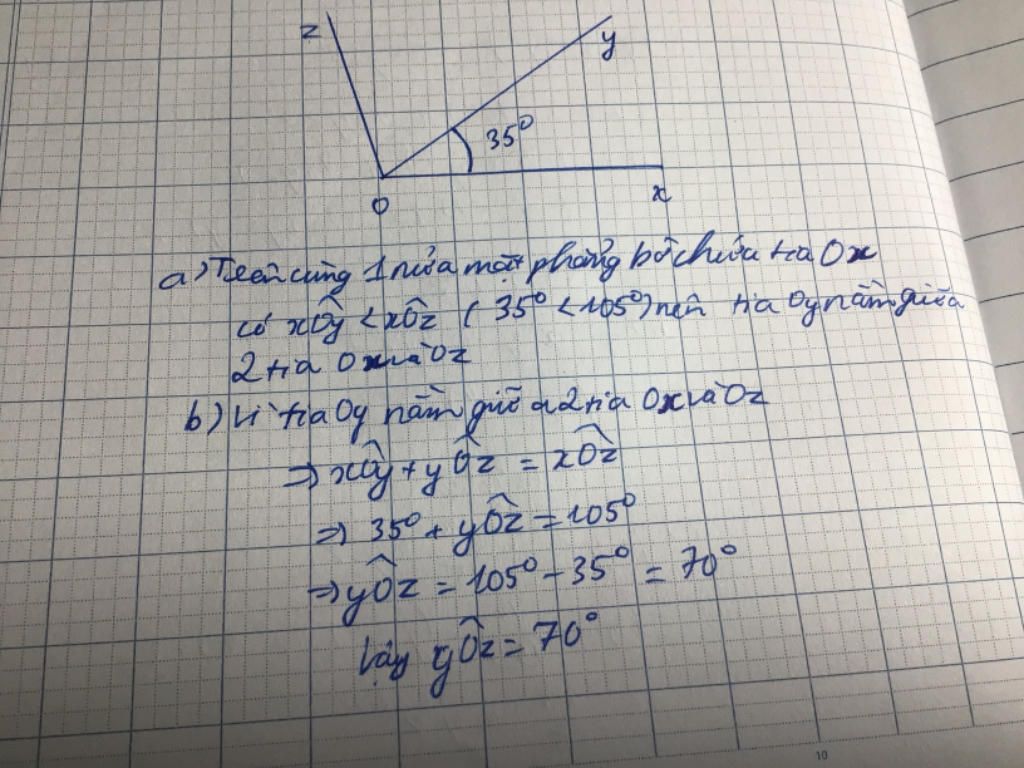 z
y
35⁰
O
x
a) Trên cùng 1 nửa mặt phẳng bờ chứa tia Ox
có xÔy < xÔz (35⁰ < 105⁰) nên tia Oy nằm giữa
2 tia Ox và Oz
b) Vì tia Oy nằm giữa 2 tia Ox và Oz
⇒ xÔy + yÔz = xÔz
⇒ 35⁰ + yÔz = 105⁰
⇒ yÔz = 105⁰ - 35⁰ = 70⁰
Vậy yÔz = 70⁰
10